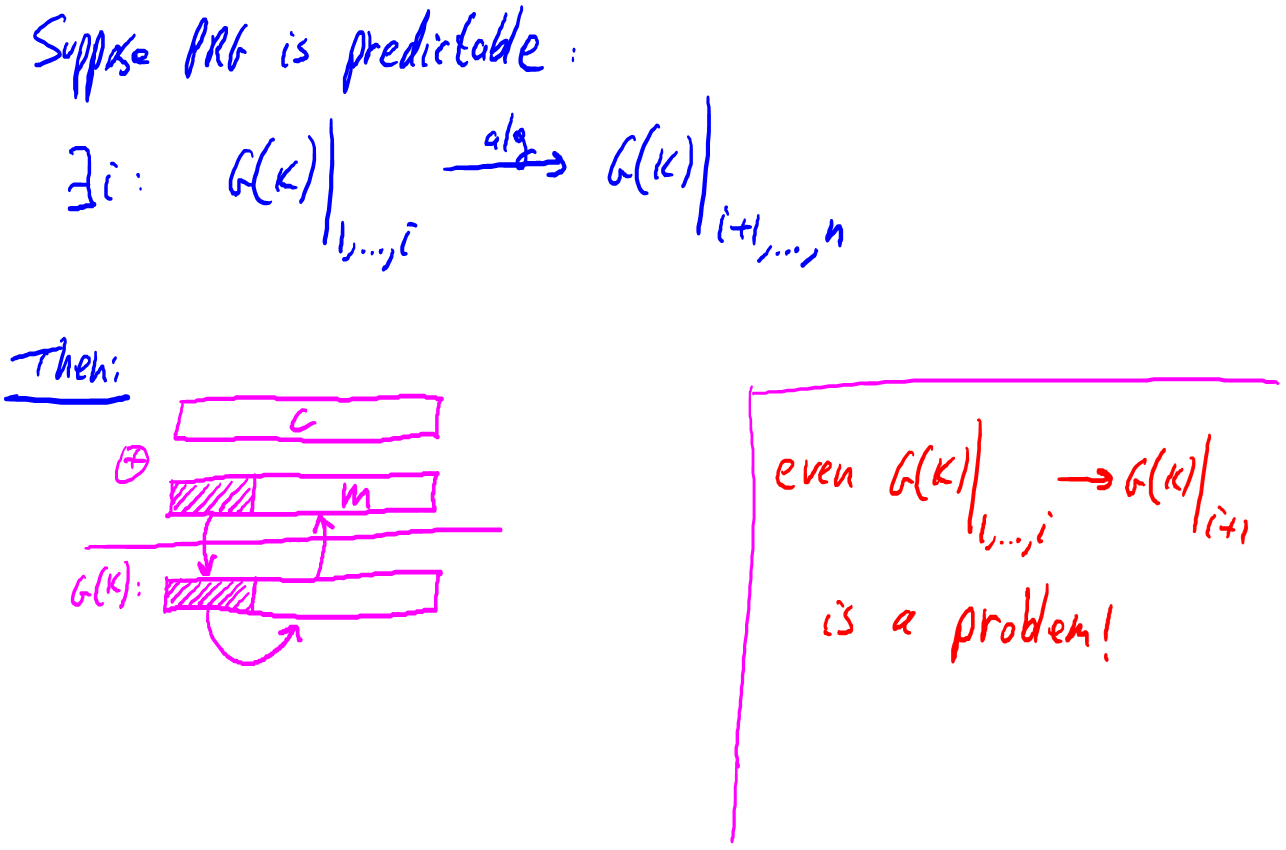 Suppose PRG is predictable:
∃i: G(K)|1,...,i alg→ G(K)|i+1,...,n
Then:
C
⊕
m
G(K):
even G(K)|1,...,i → G(K)|i+1
is a problem!